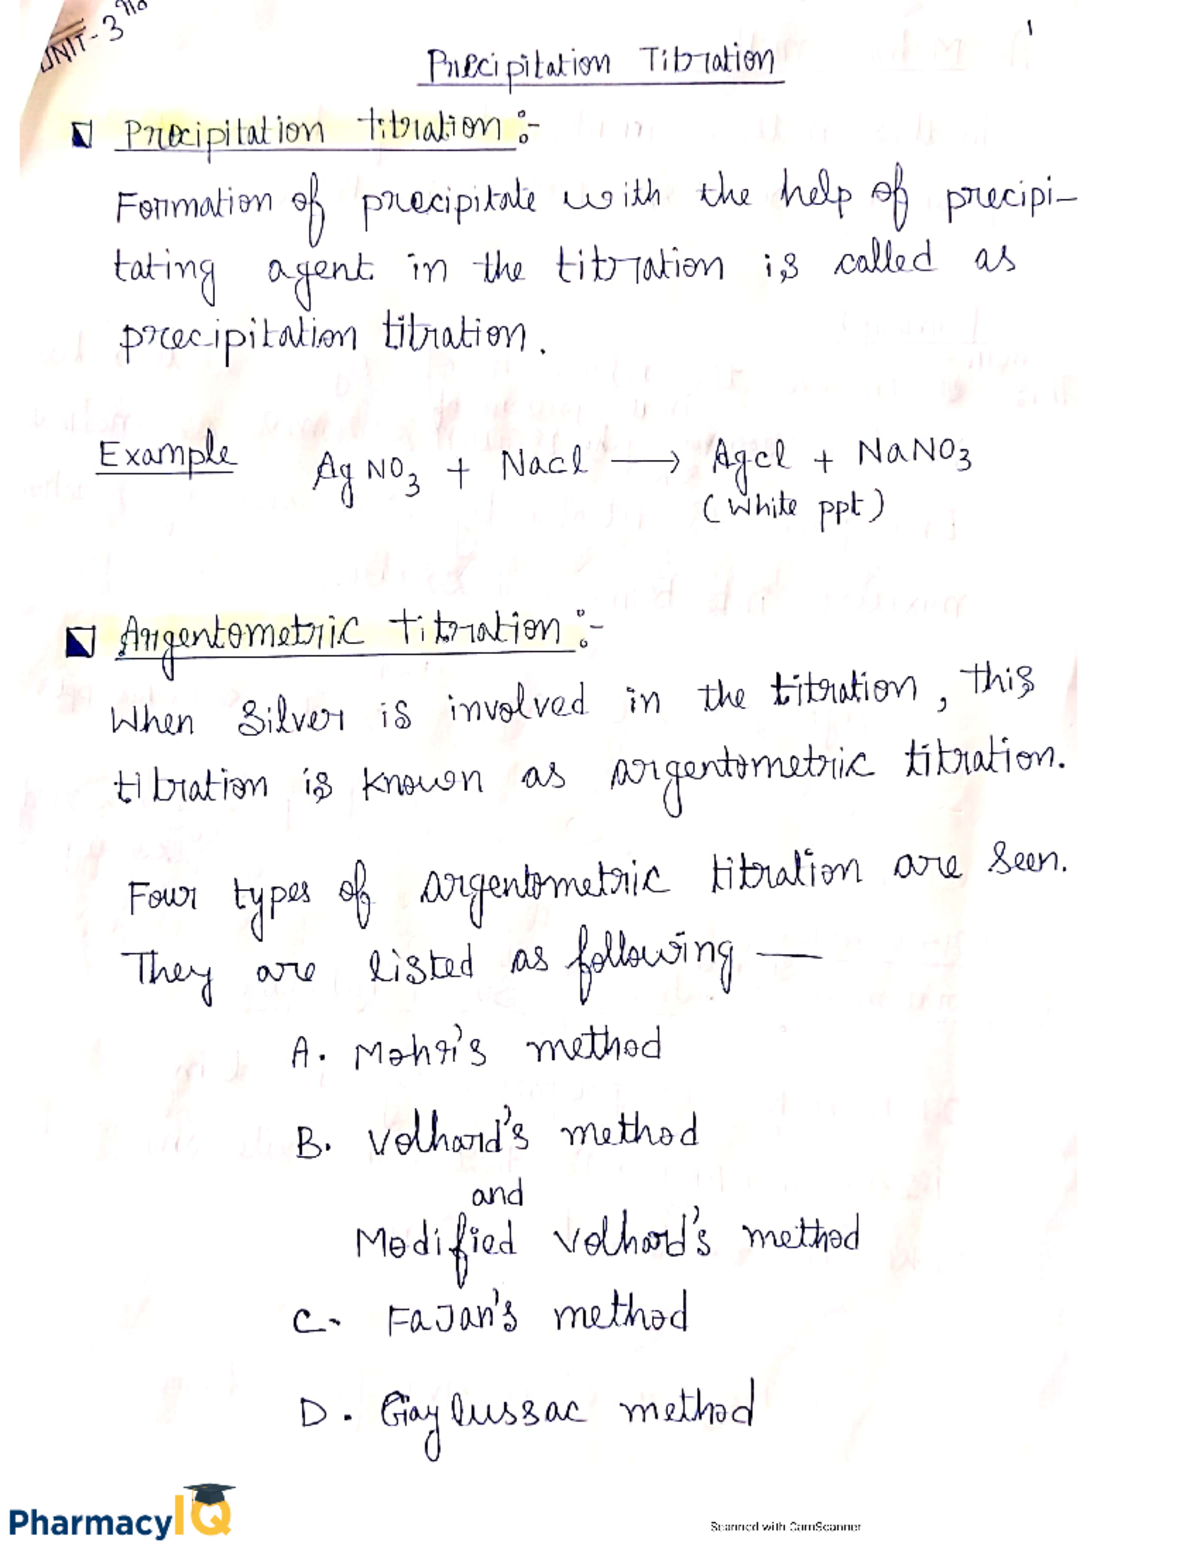 UNIT-3
1
Precipitation Titration
Precipitation titration :-
Formation of precipitate with the help of precipi-
tating agent in the titration is called as
precipitation titration.
Example AgNO3 + Nacl → Agcl + NaNO3
(White ppt)
Argentometric titration :-
When Silver is involved in the titration, this
titration is known as argentometric titration.
Four types of argentometric titration are seen.
They are listed as following —
A. Mohr's method
B. Volhard's method
and
Modified Volhard's method
C. FaJan's method
D. Gay lussac method
PharmacyIQ
Scanned with CamScanner